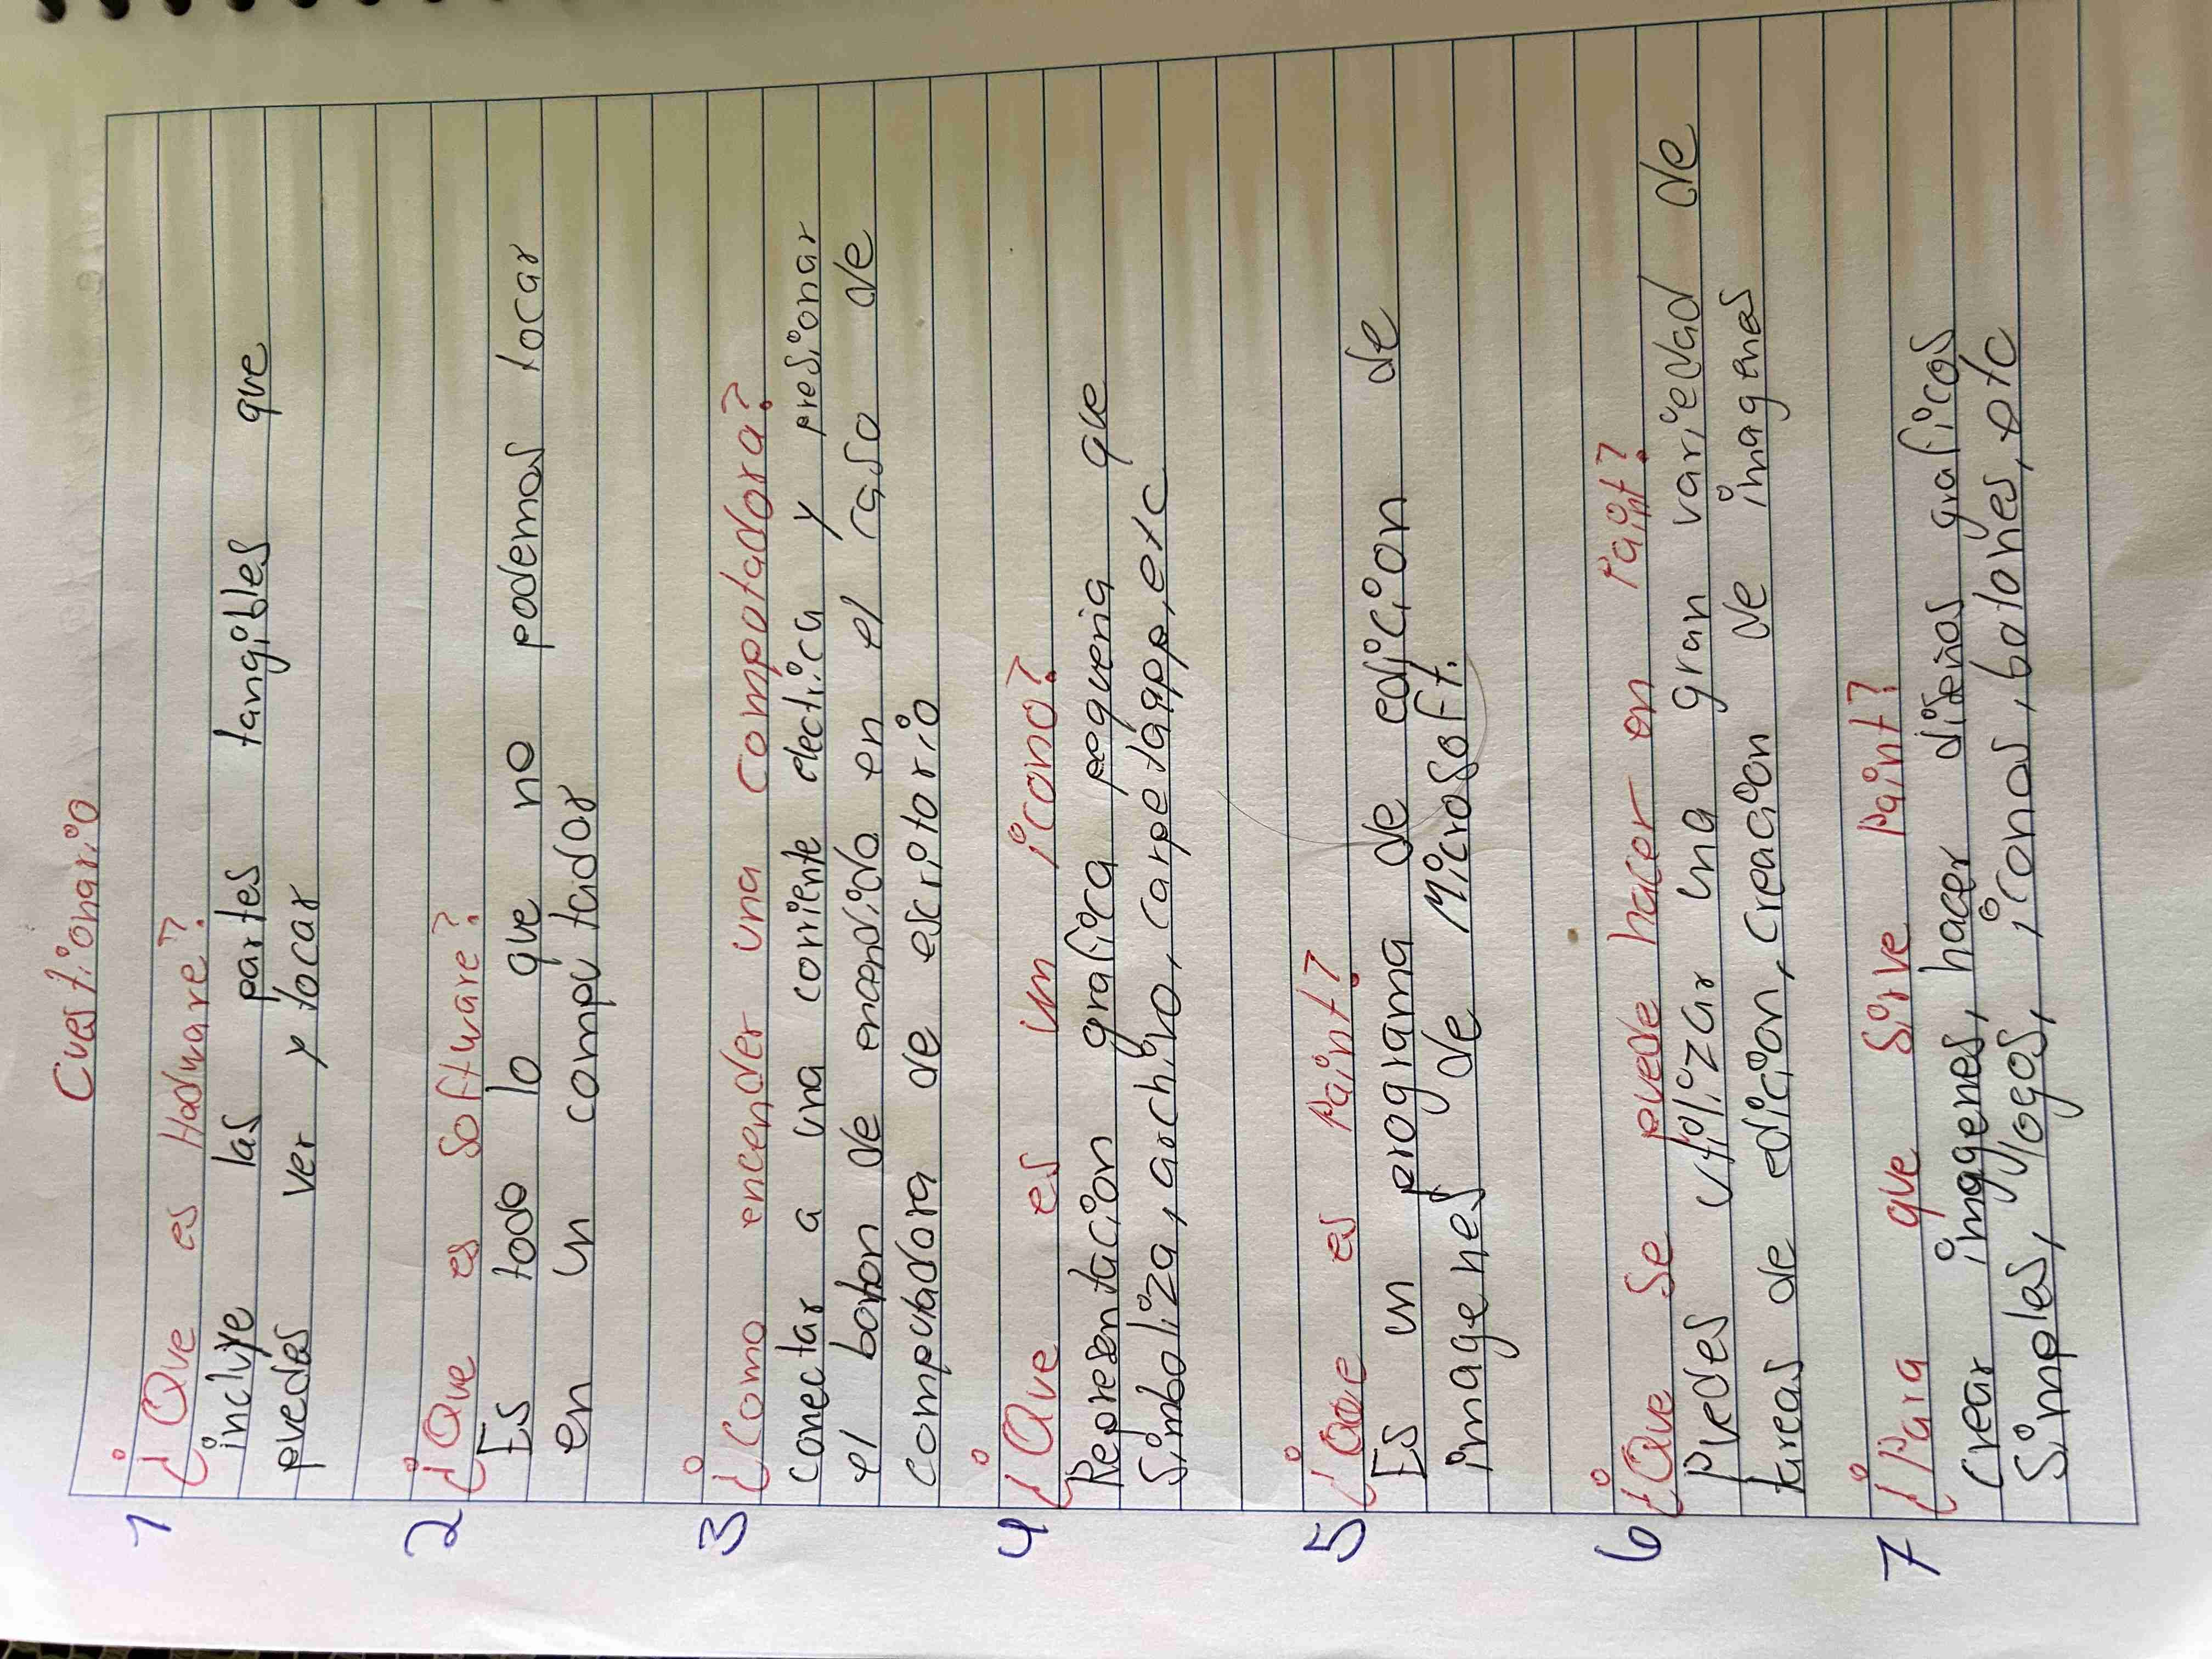 Cuestionario
1 ¿Que es Hadware?
incluye las partes tangibles que
puedes ver y tocar
2 ¿Que es Software?
Es todo lo que no podemos tocar
en un computador
3 ¿Como encender una computadora?
conectar a una corriente electrica y presionar
el boton de encendido en el caso de
compuadora de escritorio
4 ¿Que es un icono?
Representacion grafica pequeña que
Simboliza, archivo, carpeta, app, etc
5 ¿Que es Paint?
Es un programa de edicion de
imagenes de Microsoft.
6 ¿Que se puede hacer en Paint?
Puedes utilizar una gran variedad de
tareas de edicion, creacion de imagenes
7 ¿Para que sirve Paint?
Crear imagenes, hacer diseños graficos
Simples, logos, iconos, batones, etc